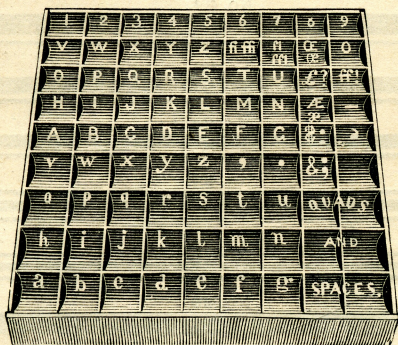 1 2 3 4 5 6 7 8 9
V W X Y Z fi ffi fl ffl Œ œ 0
O P Q R S T U £ ? ff !
H I J K L M N Æ æ -
A B C D E F G $
v w x y z , . & ;
o p q r s t u QUADS
h i j k l m n AND
a b c d e f g SPACES.